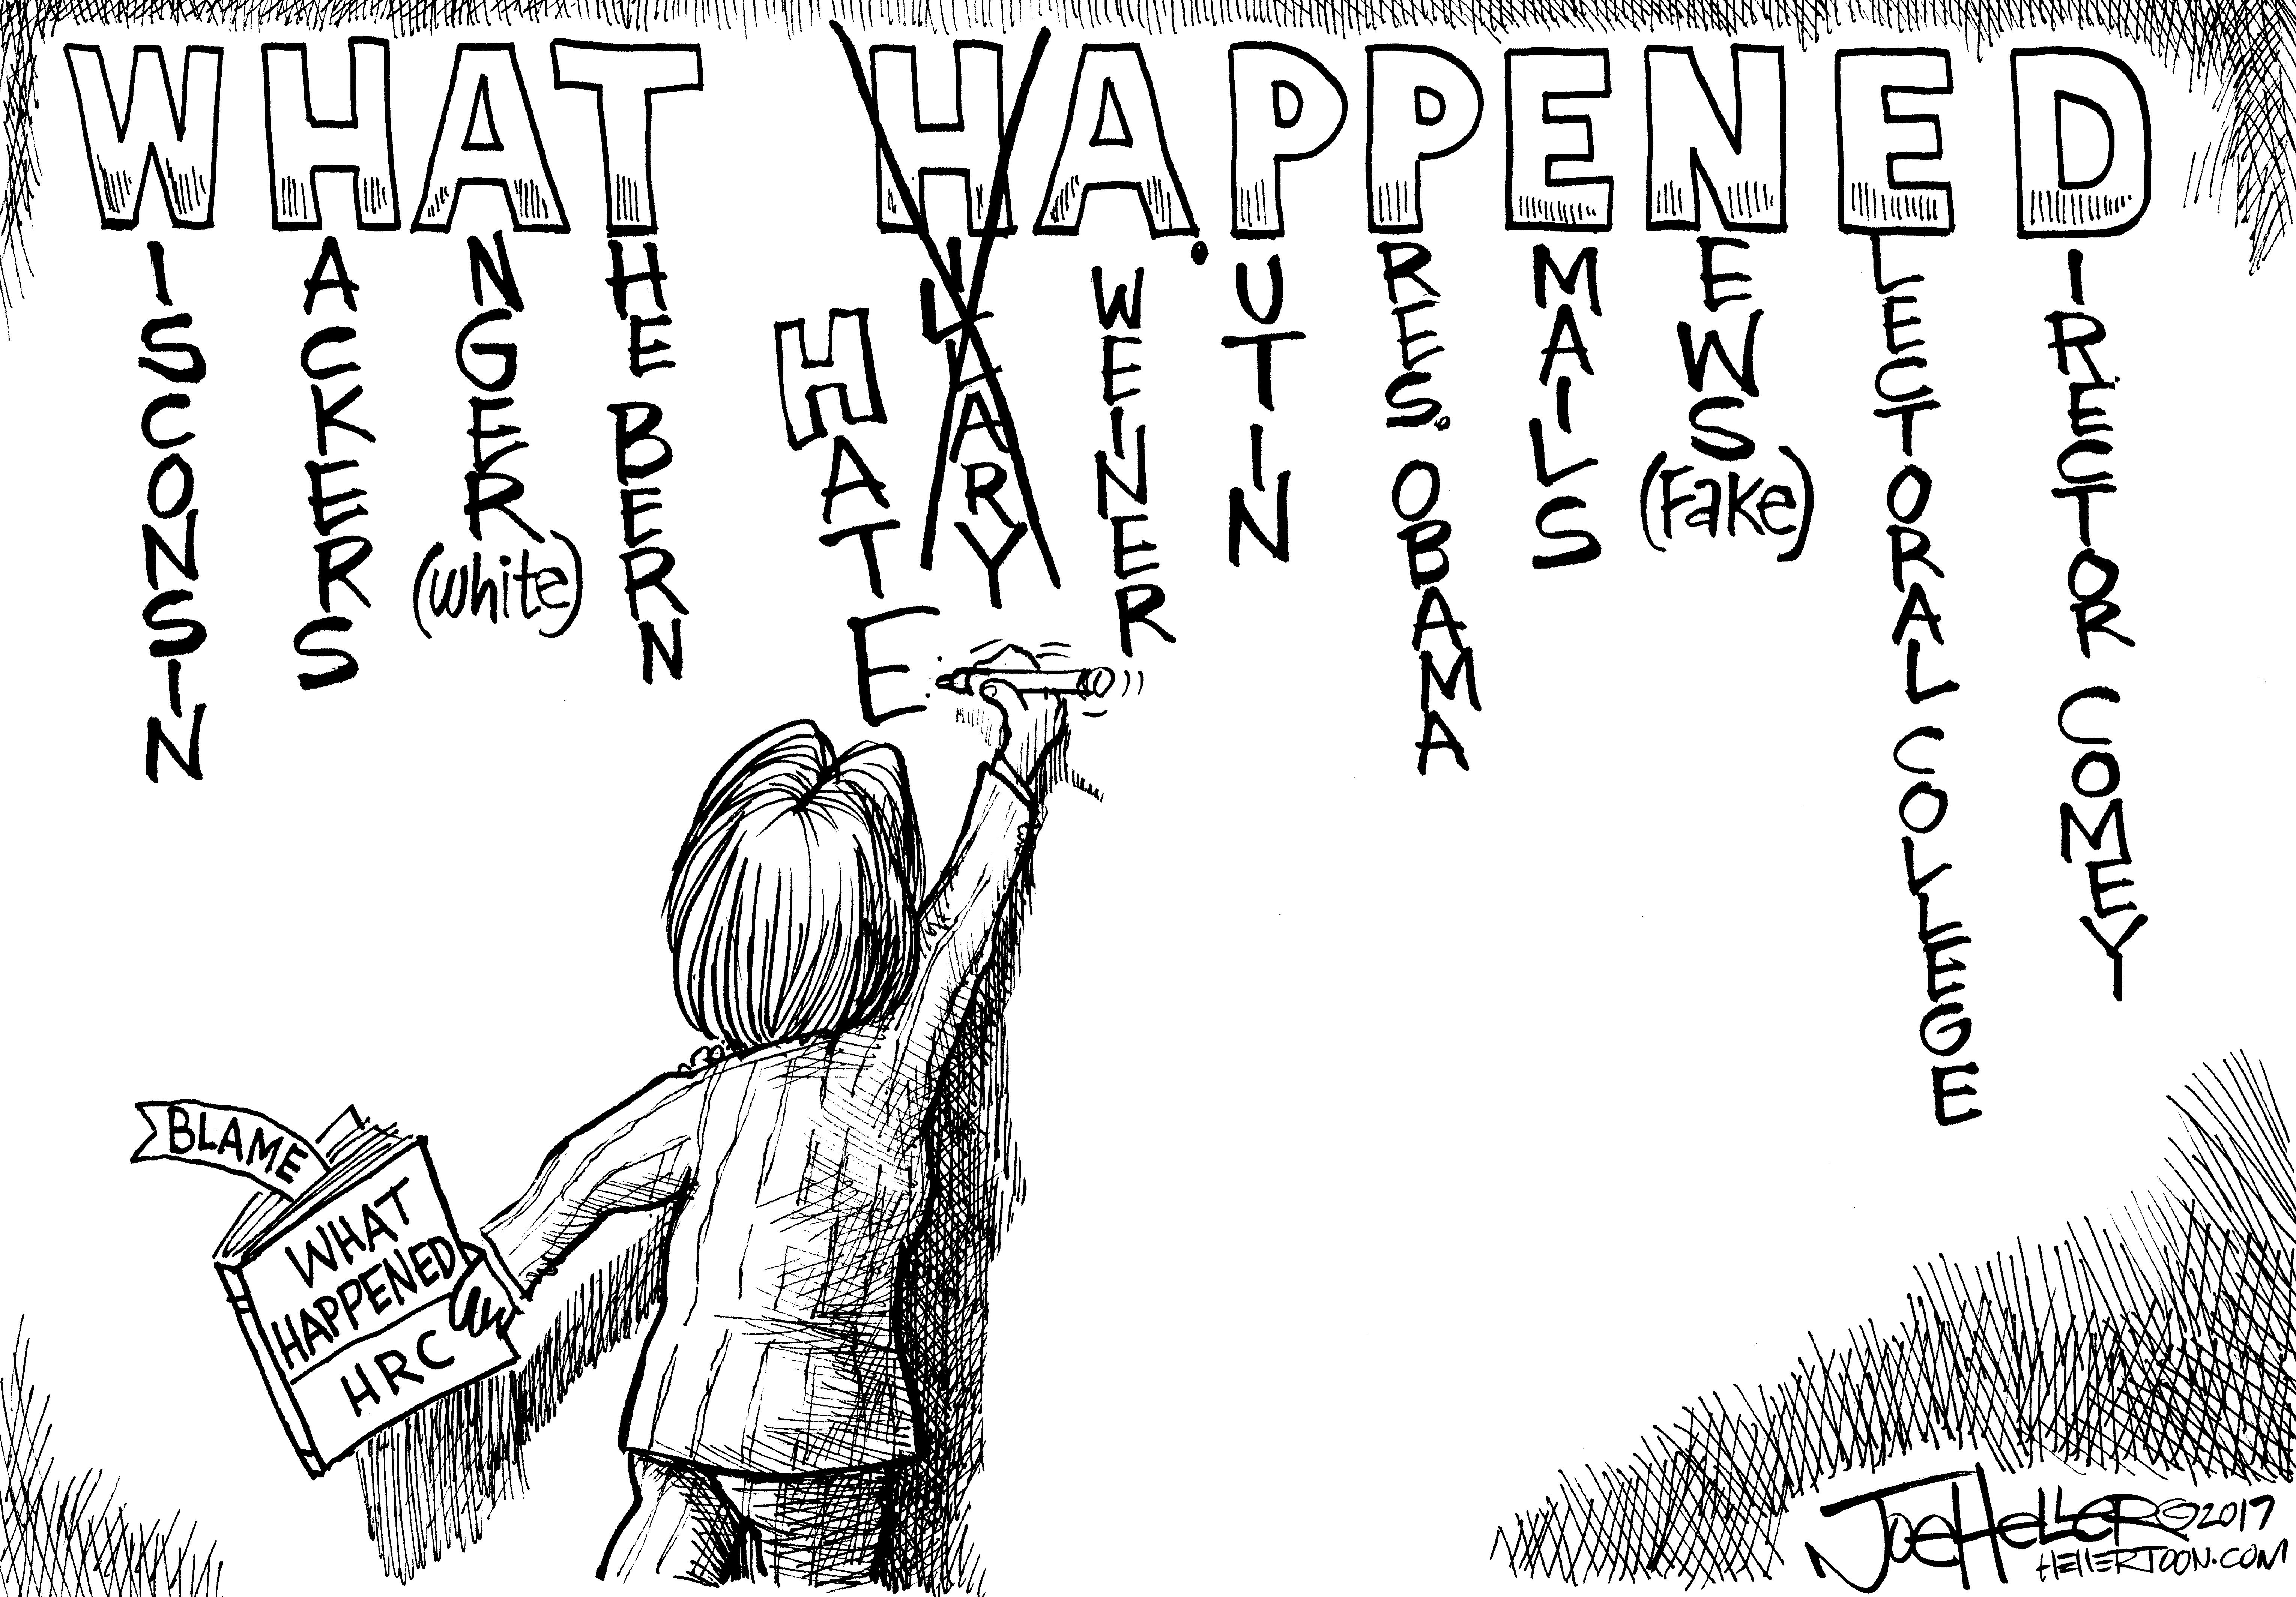 WHAT HAPPENED
WISCONSIN
HACKERS
ANGER
(White)
THE BERN
HATE
HILLARY
A. WEINER
PUTIN
PRES. OBAMA
EMAILS
NEWS
(Fake)
ELECTORAL COLLEGE
DIRECTOR COMEY
BLAME
WHAT
HAPPENED
HRC
JOE HELLER © 2017
HELLERTOON.COM